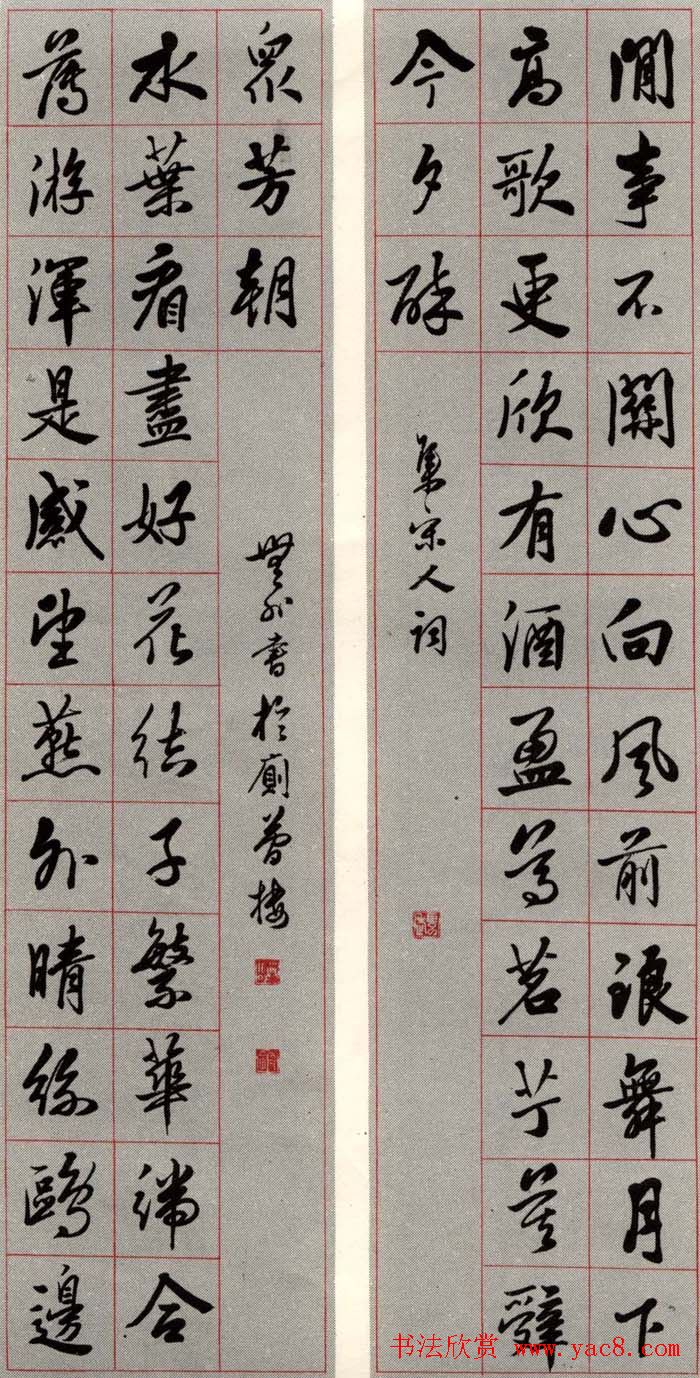 閒事不關心向風前琅舞月下
高歌更欣有酒盈尊茗艼莫辭
今夕醉
集宋人詞
舊游渾是感望燕外晴絲鷗邊
水葉看盡好花結子繁華端合
眾芳朝
無外書於樓
书法欣赏 www.yac8.com